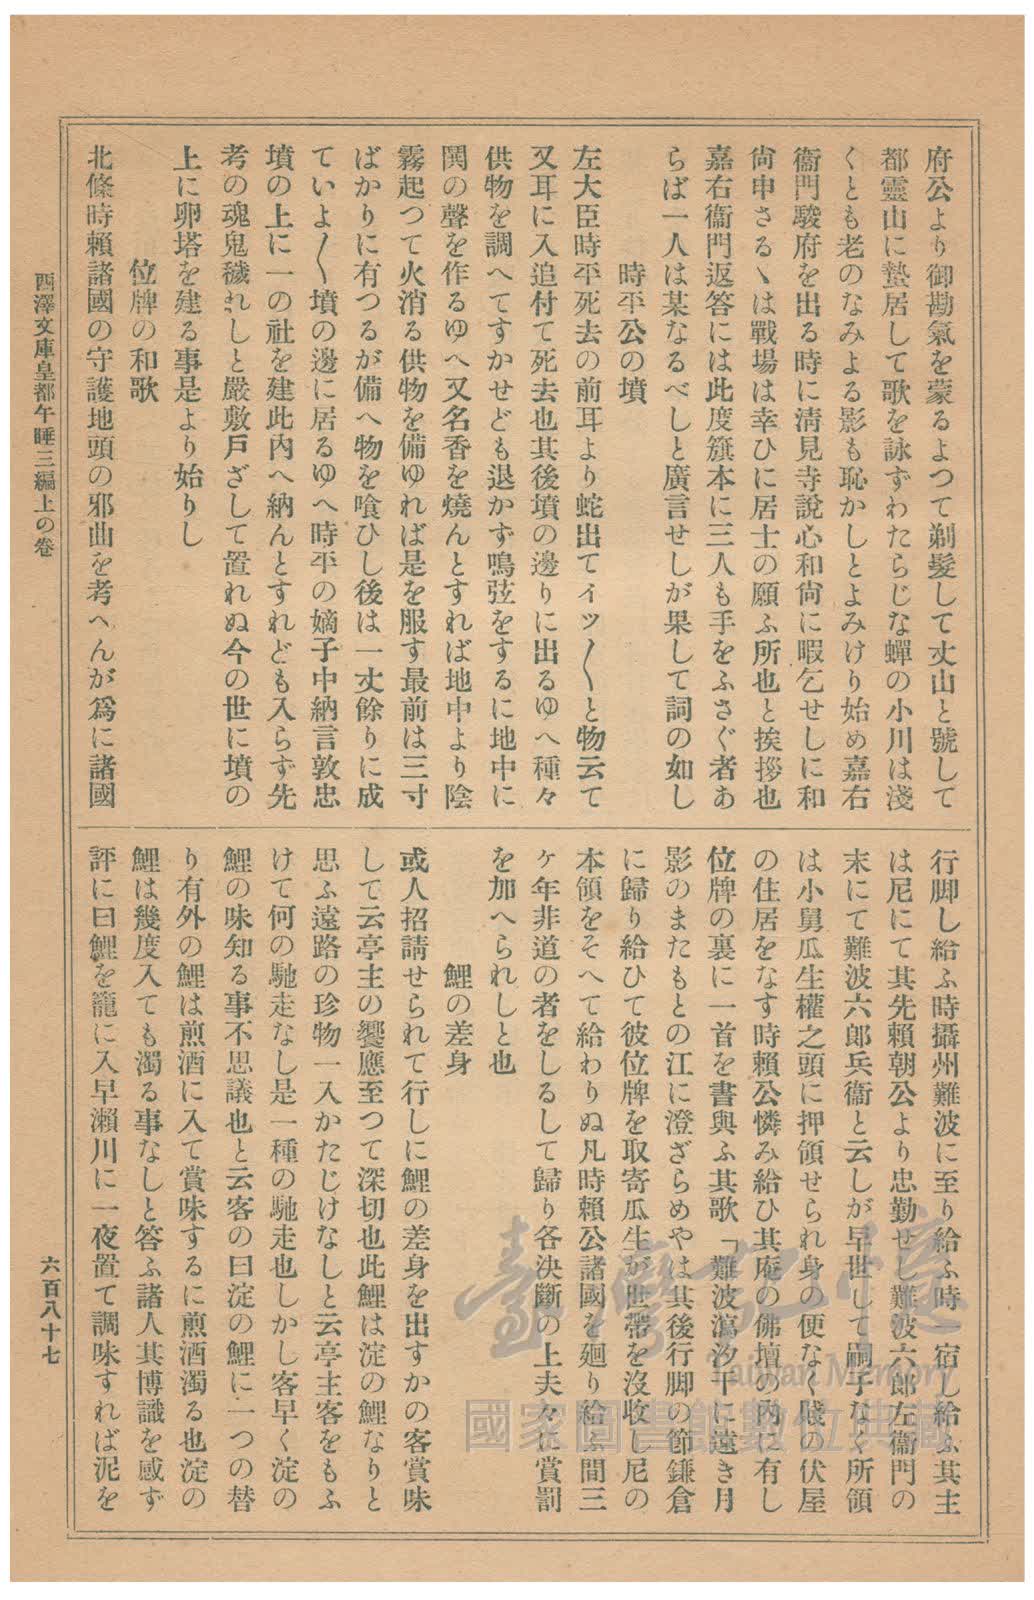 府公より御勘氣を蒙るよつて剃髮して丈山と號して
都靈山に蟄居して歌を詠ずわたらじな蟬の小川は淺
くとも老のなみよる影も恥かしとよみけり始め嘉右
衞門駿府を出る時に淸見寺說心和尙に暇乞せしに和
尙申さるゝは戰場は幸ひに居士の願ふ所也と挨拶也
嘉右衞門返答には此度籏本に三人も手をふさぐ者あ
らば一人は某なるべしと廣言せしが果して詞の如し
時平公の墳
左大臣時平死去の前耳より蛇出てイッ〳〵と物云て
又耳に入追付て死去也其後墳の邊りに出るゆへ種々
供物を調へてすかせども退かず鳴弦をするに地中に
鬨の聲を作るゆへ又名香を燒んとすれば地中より陰
霧起つて火消る供物を備ゆれば是を服す最前は三寸
ばかりに有つるが備へ物を喰ひし後は一丈餘りに成
ていよ〳〵墳の邊に居るゆへ時平の嫡子中納言敦忠
墳の上に一の社を建此內へ納んとすれども入らず先
考の魂鬼穢れしと嚴敷戶ざして置れぬ今の世に墳の
上に卵塔を建る事是より始りし
位牌の和歌
北條時賴諸國の守護地頭の邪曲を考へんが爲に諸國
行脚し給ふ時攝州難波に至り給ふ時宿し給ふ其主
は尼にて其先賴朝公より忠勤せし難波六郞左衞門の
末にて難波六郞兵衞と云しが早世して嗣子なく所領
は小舅瓜生權之頭に押領せられ身の便なく賤の伏屋
の住居をなす時賴公憐み給ひ其庵の佛壇の內に有し
位牌の裏に一首を書與ふ其歌「難波瀉汐干に遠き月
影のまたもとの江に澄ざらめやは其後行脚の節鎌倉
に歸り給ひて彼位牌を取寄瓜生が世帶を沒收し尼の
本領をそへて給わりぬ凡時賴公諸國を廻り給ふ間三
ヶ年非道の者をしるして歸り各決斷の上夫々に賞罰
を加へられしと也
鯉の差身
或人招請せられて行しに鯉の差身を出すかの客賞味
して云亭主の饗應至つて深切也此鯉は淀の鯉なりと
思ふ遠路の珍物一入かたじけなしと云亭主客をもふ
けて何の馳走なし是一種の馳走也しかし客早く淀の
鯉の味知る事不思議也と云客の曰淀の鯉に一つの替
り有外の鯉は煎酒に入て賞味するに煎酒濁る也淀の
鯉は幾度入ても濁る事なしと答ふ諸人其博識を感ず
評に曰鯉を籠に入早瀨川に一夜置て調味すれば泥を
西澤文庫皇都午睡三編上の卷
六百八十七
臺灣記憶
Taiwan Memory
國家圖書館數位典藏